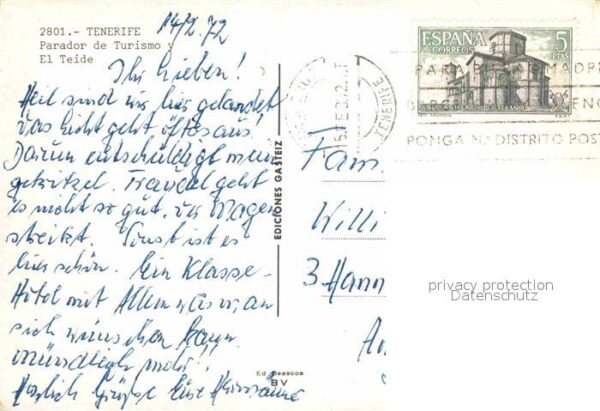 2801.- TENERIFE
Parador de Turismo y
El Teide
14/2.72
Ihr Lieben!
Heil sind wir hier gelandet
das Licht geht öfters aus!
Darum entschuldigt mein
gekritzel. Traudel geht
es nicht so gut, der Magen
streikt. Sonst ist es
hier schön. Ein Klasse-
Hotel mit Allem was man
sich wünschen kann.
mündlich mehr!!
Herzlich Grüsse Eure
EDICIONES GASTEIZ
Ed. Beascoa
BV
ESPAÑA
CORREOS
5
PTAS
TENERIFE
PONGA Nº DISTRITO POST
Fam.
Willi
3 Hann
privacy protection
Datenschutz